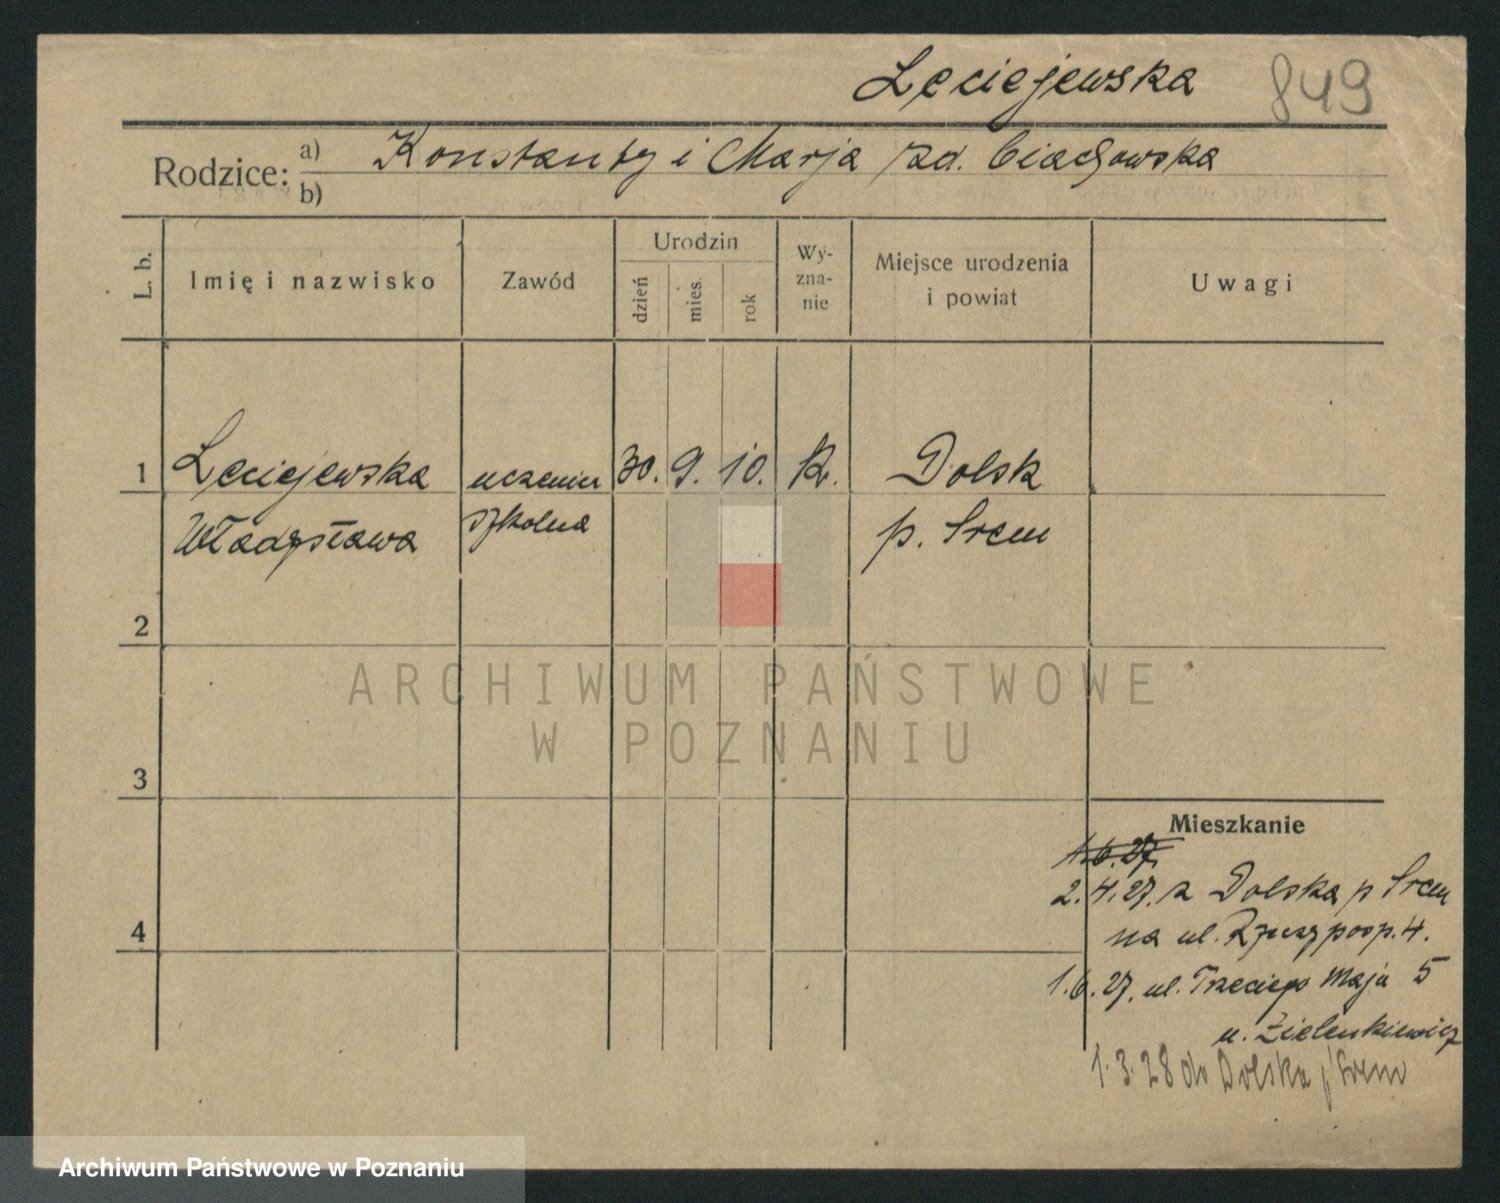 Leciejewska 849
Rodzice: a) Konstanty i Marja zd. Ciachowska
b)
L. b.
Imię i nazwisko
Zawód
Urodzin
dzień
mies.
rok
Wy-
zna-
nie
Miejsce urodzenia
i powiat
Uwagi
1 Leciejewska uczenica 30. 9. 10. k. Dolsk
Władysława szkolna p. Śrem
2
3
4
Mieszkanie
1.6.27.
2.4.27. z Dolska p Śrem
na ul. Rzeczyposp. 4.
1.6.27. ul. Trzeciego Maja 5
u. Zielenkiewicz
1.3.28 do Dolska p/Śrem
ARCHIWUM PAŃSTWOWE
W POZNANIU
Archiwum Państwowe w Poznaniu